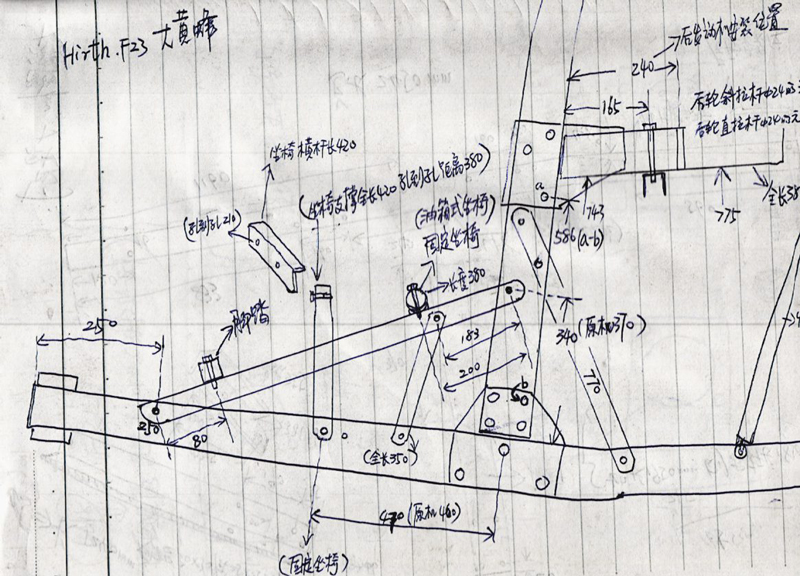 Hirth.F23 大黄蜂
后发动机安装位置
240
165
后轮斜拉杆中24
后轮直拉杆中24
坐椅横杆长420
(坐椅支撑全长420 孔到孔距离380)
(孔到孔210)
(油箱式坐椅)
固定坐椅
长度380
a
743
775
全长38
586(a-b)
脚踏
250
183
200
340(原机370)
770
b
250
80
(全长350)
470(原机460)
(固定坐椅)